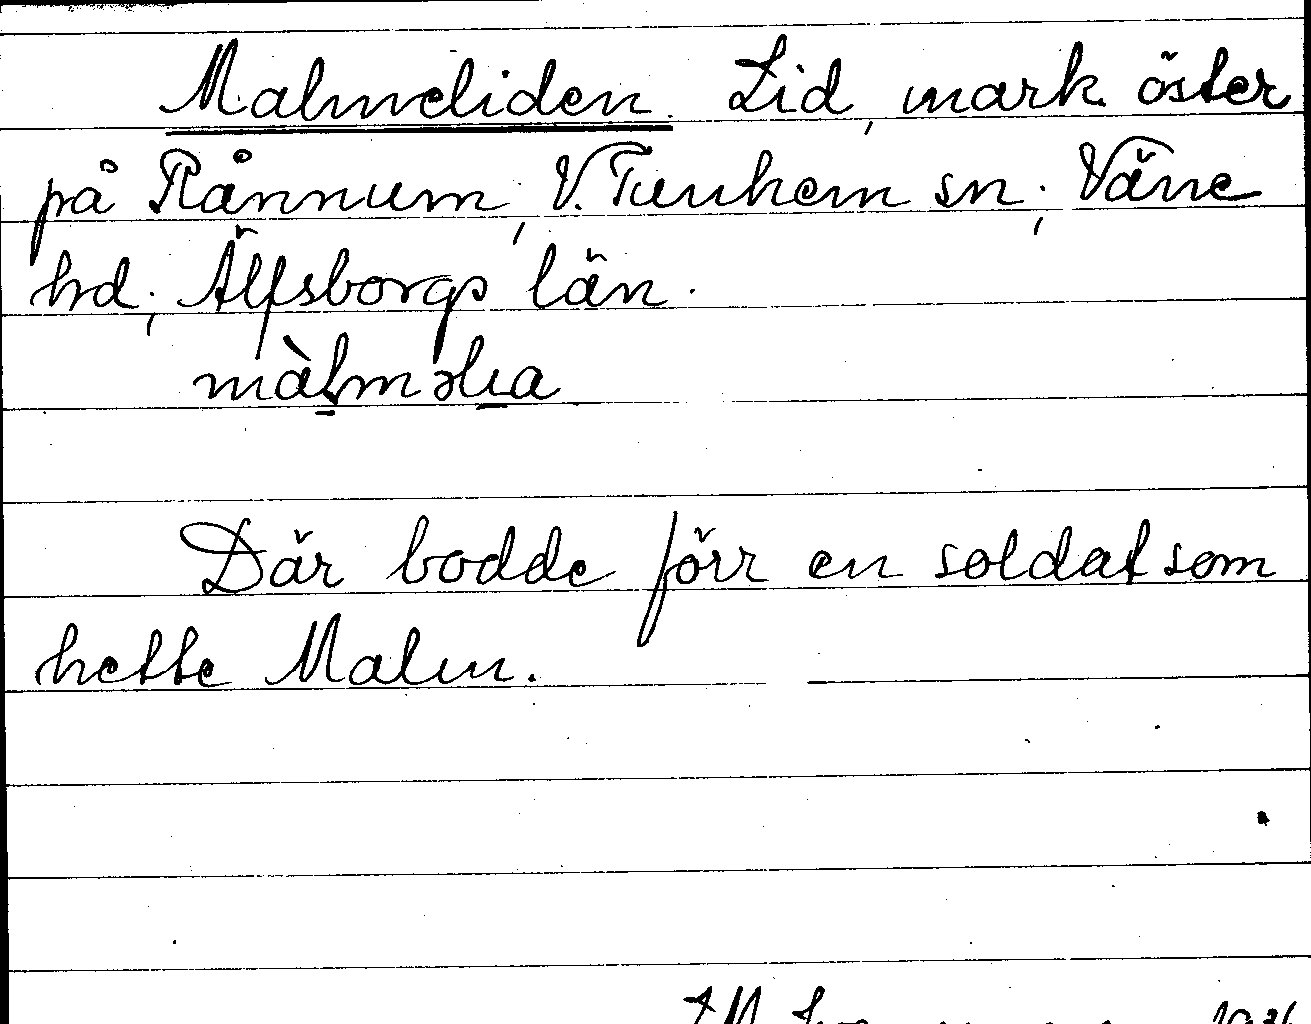 Malmeliden. Lid, mark öster
på Rånnum, V. Tunhem sn., Väne
hd., Älfsborgs län.
màlməlıa
Där bodde förr en soldat som
hette Malm.